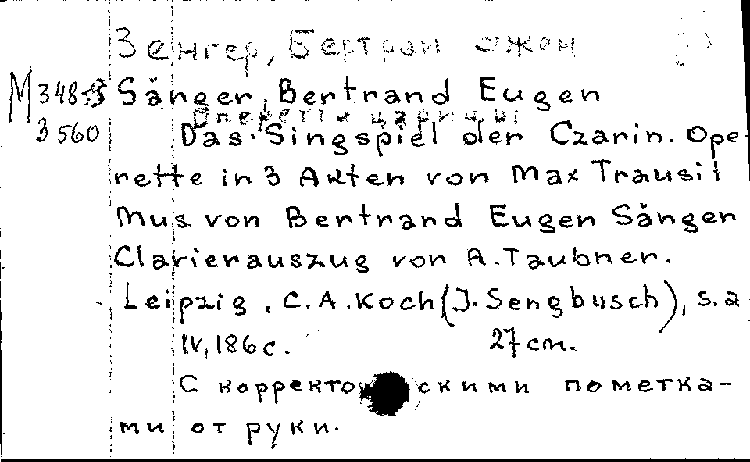 Зенгер, Бертран Южен
М 348-3
3 560
Sänger, Bertrand Eugen
Оперетта царицы
Das Singspiel der Czarin. Ope-
rette in 3 Akten von Max Trausil
Mus von Bertrand Eugen Sänger
Clavierauszug von A. Taubner.
Leipzig, C.A. Koch (J. Sengbusch), s.a
IV, 186 с. 27 cm.
С корректорскими пометка-
ми от руки.